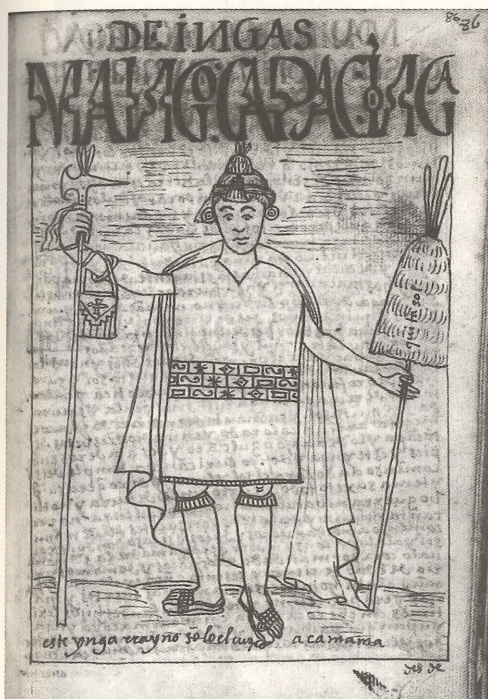 86 86
DE ÍNGAS
MANGOCAPACÍNGA
este ynga rreyno solo el cuzco acamama
des de